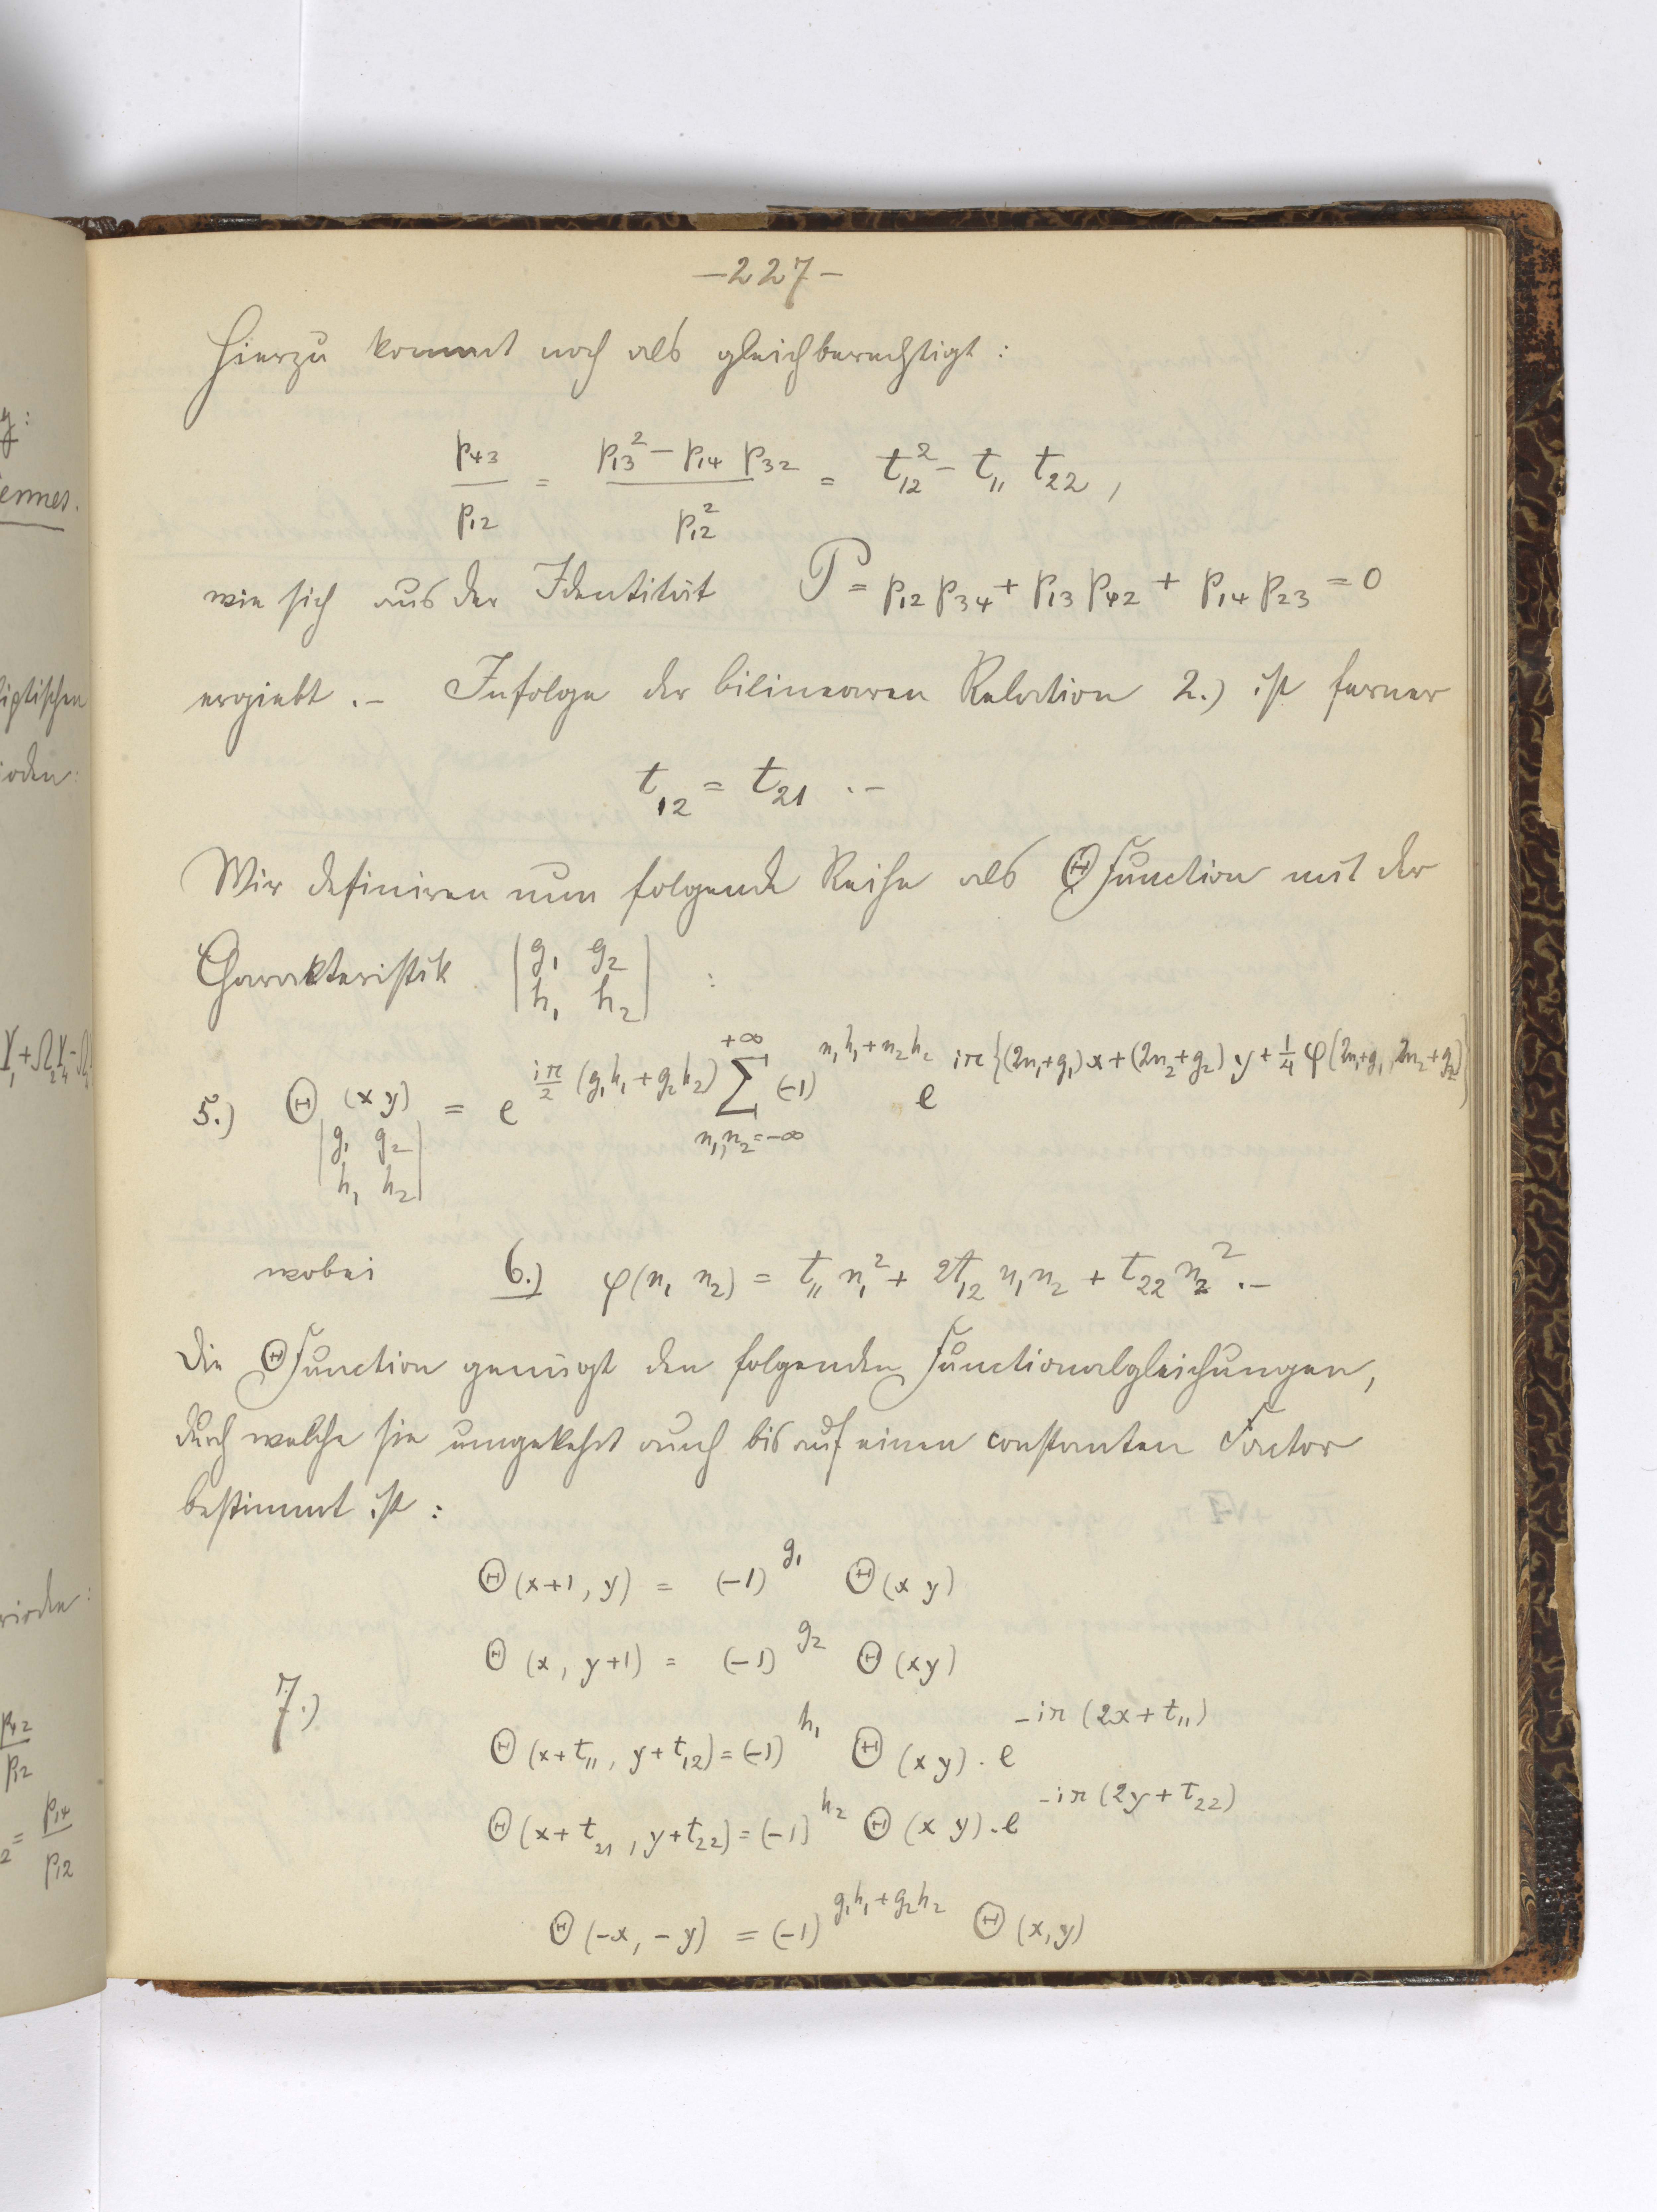 –227–
Hierzu kommt noch als gleichberechtigt:
p₄₃/p₁₂ = (p₁₃² – p₁₄ p₃₂)/p₁₂² = t₁₂² – t₁₁ t₂₂ ,
wie sich aus der Identität P = p₁₂ p₃₄ + p₁₃ p₄₂ + p₁₄ p₂₃ = 0
ergiebt .– Infolge der bilinearen Relation 2.) ist ferner
t₁₂ = t₂₁ .–
Wir definiren nun folgende Reihe als Θ Function mit der
Charakteristik |g₁ g₂ / h₁ h₂| :
5.) Θ_{|g₁ g₂ / h₁ h₂|} (x y) = e^{iπ/2 (g₁h₁ + g₂h₂)} ∑_{n₁, n₂ = –∞}^{+∞} (–1)^{n₁h₁ + n₂h₂} e^{iπ{(2n₁+g₁)x + (2n₂+g₂)y + 1/4 φ(2n₁+g₁, 2n₂+g₂)}}
wobei 6.) φ(n₁ n₂) = t₁₁ n₁² + 2t₁₂ n₁n₂ + t₂₂ n₂² .–
Die Θ Function genügt den folgenden Functionalgleichungen,
durch welche sie umgekehrt auch bis auf einen constanten Factor
bestimmt ist :
Θ(x+1, y) = (–1)^{g₁} Θ(x y)
Θ(x, y+1) = (–1)^{g₂} Θ(xy)
7.)
Θ(x+t₁₁, y+t₁₂) = (–1)^{h₁} Θ(xy) . e^{–iπ(2x+t₁₁)}
Θ(x+t₂₁, y+t₂₂) = (–1)^{h₂} Θ(x y) . e^{–iπ(2y+t₂₂)}
Θ(–x, –y) = (–1)^{g₁h₁+g₂h₂} Θ(x,y)